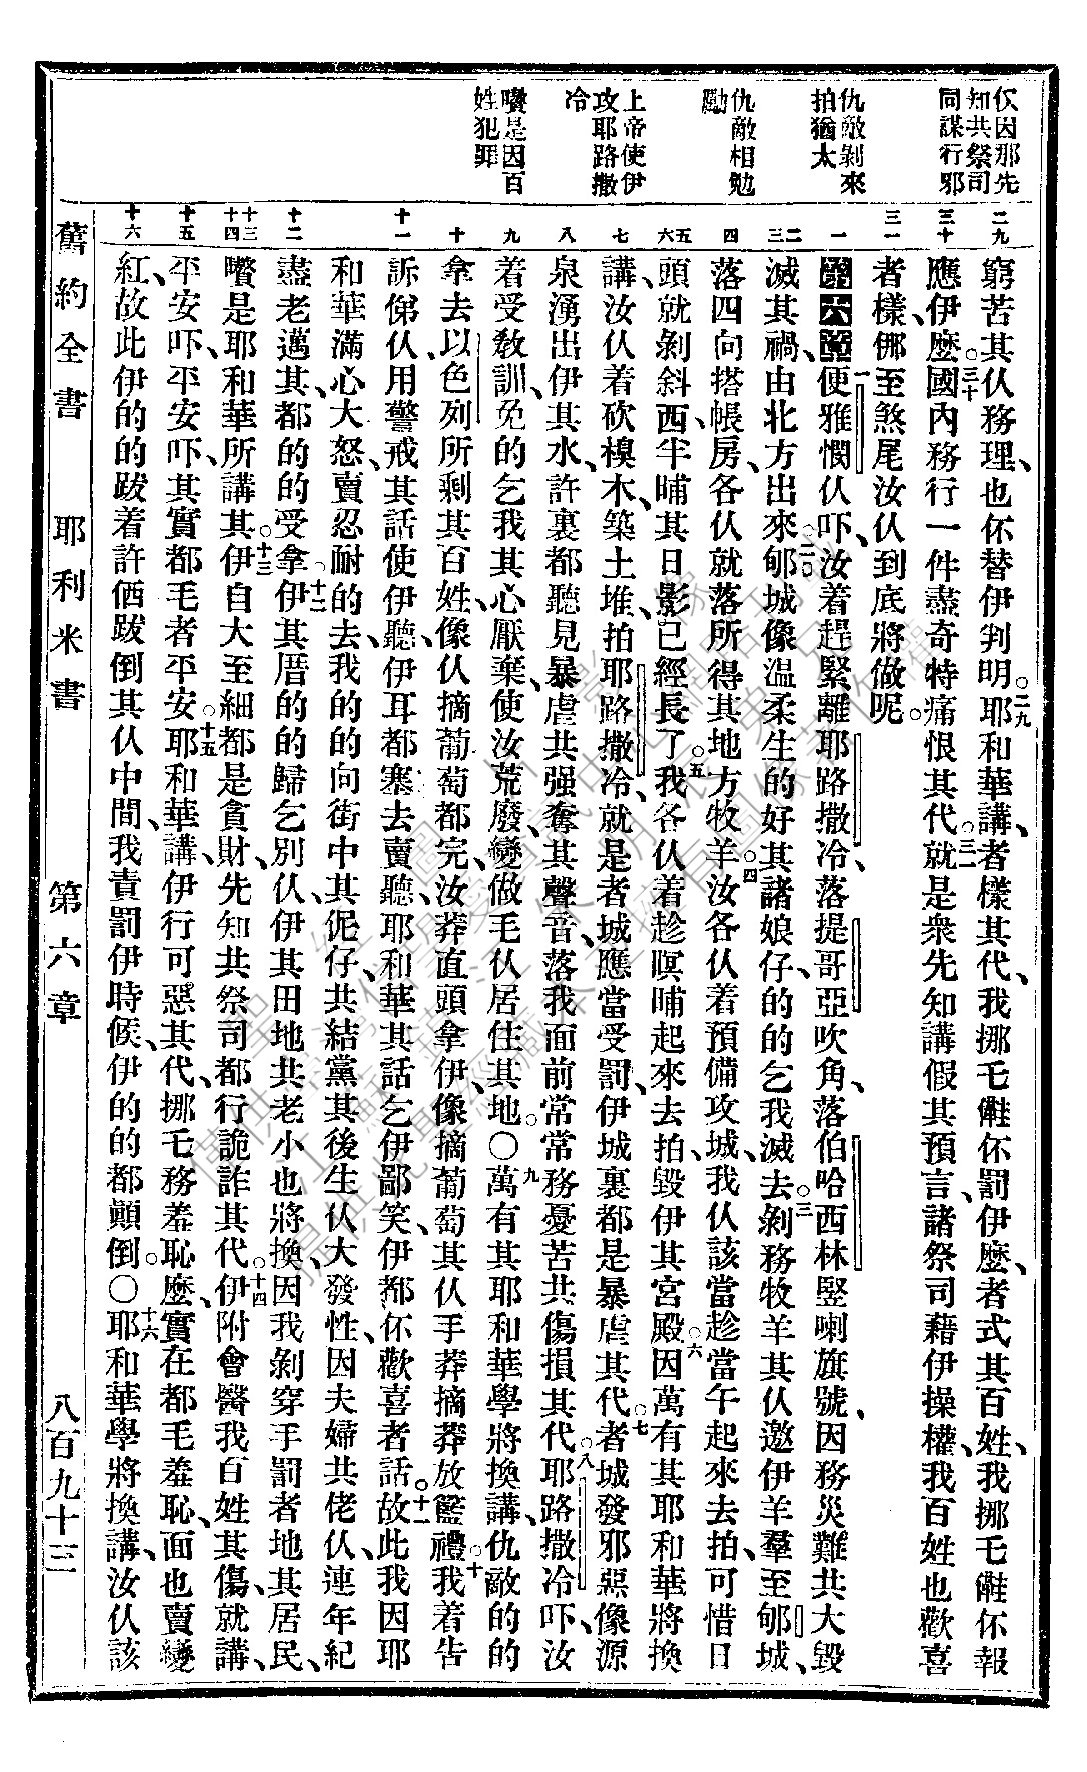 仅因那先
知共祭司
同謀行邪
仇敵剝來
拍猶太
仇敵相勉
勵
上帝使伊
攻耶路撒
冷
嚽是因百
姓犯罪
二九
三十
三一
一
二
三
四
五
六
七
八
九
十
十一
十二
十三
十四
十五
十六
窮苦其仈務理、也伓替伊判明。二九耶和華講、者樣其代、我挪乇能伓罰伊麼、者式其百姓、我挪乇能伓報
應伊麼。三十國內務行一件盡奇特痛恨其代。三一就是衆先知講假其預言、諸祭司藉伊操權、我百姓也歡喜
者樣、㑚至煞尾汝仈到底將做呢。
第六章一便雅憫仈吓、汝着趕緊離耶路撒冷、落提哥亞吹角、落伯哈西林竪喇旗號、因務災難共大毀
滅其禍、由北方出來。二郇城像温柔生的好其諸娘仔、的的乞我滅去。三剝務牧羊其仈邀伊羊羣至郇城、
落四向搭帳房、各仈就落所得其地方牧羊。四汝各仈着預備攻城、我仈該當趁當午起來去拍、可惜日
頭就剝斜西、半晡其日影已經長了。五我各仈着趁暝晡起來去拍、毀伊其宮殿。六因萬有其耶和華將換
講、汝仈着砍樣木、築土堆、拍耶路撒冷、就是者城應當受罰、伊城裏都是暴虐其代。七者城發邪惡、像源
泉湧出伊其水、許裏都聽見暴虐共强奪其聲音、落我面前常常務憂苦共傷損其代。八耶路撒冷吓、汝
着受教訓、免的乞我其心厭棄、使汝荒廢、變做毛仈居住其地。〇九萬有其耶和華學將換講、仇敵的的
拿去以色列所剩其百姓、像仈摘葡萄都完、汝莽直頭拿伊、像摘葡萄其仈手莽摘莽放籃禮。十我着告
訴俤仈、用警戒其話使伊聽、伊耳都塞去賣聽、耶和華其話乞伊鄙笑、伊都伓歡喜者話。十一故此我因耶
和華滿心大怒、賣忍耐的去、我的的向街中其伲仔、共結黨其後生仈大發性、因夫婦共佬仈、連年紀
盡老邁其、都的的受拿。十二伊其厝的的歸乞別仈、伊其田地共老小也將換、因我剝穿手罰者地其居民、
嚽是耶和華所講其。十三伊自大至細都是貪財、先知共祭司都行詭詐其代。十四伊附會醫我百姓其傷、就講、
平安吓、平安吓、其實都毛者平安。十五耶和華講、伊行可惡其代、挪乇務羞恥麼、實在都毛羞恥、面也賣變
紅、故此伊的的跋着許仴跋倒其仈中間、我責罰伊時候、伊的的都顚倒。〇十六耶和華學將換講、汝仈該
舊約全書 耶利米書 第六章 八百九十三